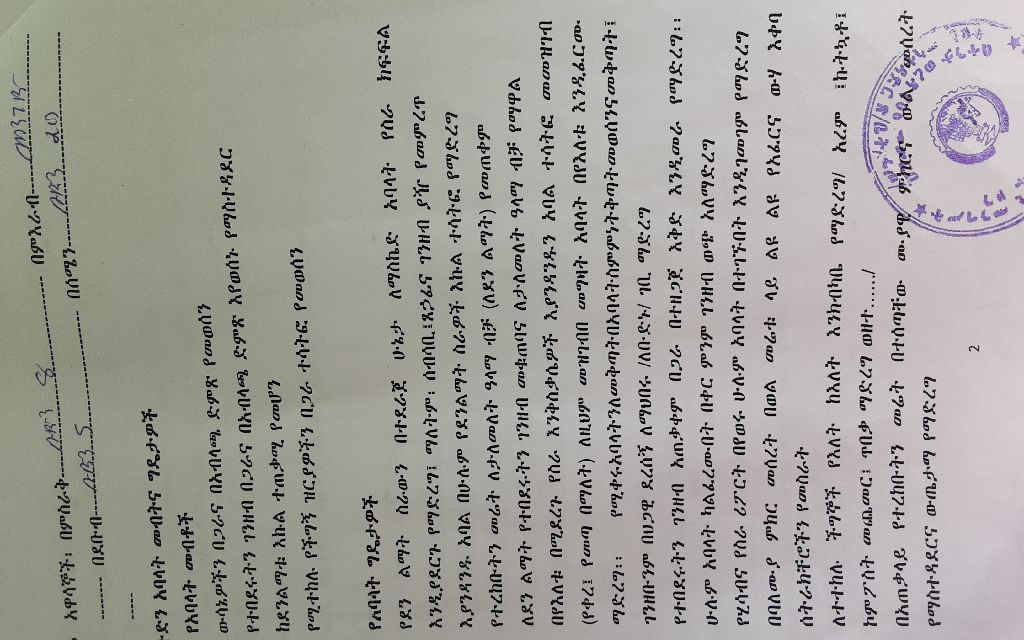 አዋሳኞች፡ በምስራት-----ሎደን 8-------------- በምእራብ-----
------- በደቡብ----ሎደን 5--------------- በሰሜን------ሎደን
-----
አባላት መብትና ግዴታዎች
የአባላት መብቶች
ውሳኔዎችን በጋራና በአብላጫ ድምጽ የመወሰን
የተበደሩትን ገንዘብ በጋራና በአብላጫ ድምጽ እየወሰኑ የማስተዳደር
ከደንልማቱ እኩል ተጠቃሚ የመሆን
የሚተከሉ የችግኝ ዝርያዎችን በጋራ ተሳትፎ የመወሰን
የአባላት ግዴታዎች
የደን ልማት ስራውን በተደራጀ ሁኔታ ለማስኬድ አባላት የስራ ክፍፍል
እንዲያደርጉ የማድረግ፤ ማለትም፡ ሰብሳቢ፤ጸኃፊና ገንዘብ ያዥ የመምረጥ
እያንዳንዱ አባል በሁሉም የደንልማት ስራዎች እኩል ተሳትፎ የማድረግ
የተረከቡትን መሬት ለታለመለት ዓላማ ብቻ (ለደን ልማት) የመጠቀም
ለደን ልማት የተበደሩትን ገንዘብ መቁጠባና ለታለመለት ዓላማ ብቻ የማዋል
በየእለቱ በሚደረጉ የስራ እንቅስቃሴዎች እያንዳንዱን አባል ተሳትፎ መመዝገብ
(የቀረ፤ የመጣ በማለት) ለዚህም መዝገብበ መግዛት አባላት በየእለቱ እንዲፈርሙ
ማድረግ፡፡ የሚቀሩአባላትንለመቅጣትበአባላትስምምነትቅጣትመወሰንናመቅጣት፤
ገንዘቡንም በህጋዊ ደረሰኝ ለማህበሩ /ለቡድኑ/ ገቢ ማድረግ
የተበደሩትን ገንዘብ አጠቃቀም በጋራ በተዘጋጀ እቅድ እንዲመራ የማድረግ፡፡
ሁሉም አባላት ካልፈረሙበት በቀር ምንም ገንዘብ ወጭ አለማድረግ
የሂሳብና የስራ ሪፖርት በየወሩ ሁሉም አባላት በተገኙበት እንዲገመገም የማድረግ
በባለሙያ ምክር መሰረት በወል መሬቱ ላይ ልዩ ልዩ የአፈርና ውሃ እቀባ
ስትራክቸሮችን የመስራት
ለተተከሉ ችግኞች የእለት ከእለት እንክብካቤ የማድረግ/ አረም ፤ኩትኳቶ፤
ኮምፖስት መጨመር፤ ጥበቃ ማድረግ ወዘተ……./
በአጠቃላይ የተረከቡትን መሬት በተሰጣቸው ሙያዊ ምክርና ውል መሰረት
የማስተዳደርና ውጤታማ የማድረግ
2